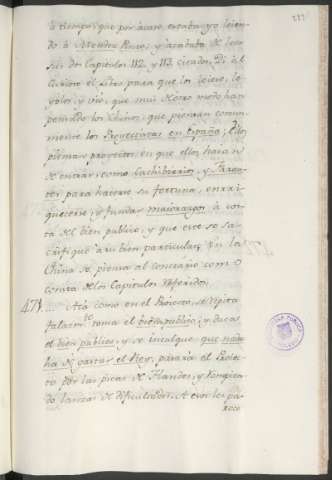 à tiempo, que por acaso estaba yo leien-
do à Mendez Pinto, y acababa de leer
sus dos Capitulos 112. y 113. citados. Di al
Curioso el Libro para que los leiese, le-
yólos, y vió, que mui de otro modo han
pensado los Chinos, que piensan comun-
mente los Proyectistas en España. Ellos
piensan proyectos, en que ellos haian
de entrar, como
ter para hacerse su fortuna, enrri-
quecerse, y fundar maiorazgos à cos-
ta del bien publico, y que este se sa-
crifique à su bien particular. En la
China se piensa al contrario, como
consta de los Capitulos referidos.
471 Asi como en el Proiecto, se repita
fatalmte. toma el bien publico, y daca
el bien publico, y se inculque que nada
ha de gastar el Rey, pasarà el Proiec-
to por las picas de Flandes, y
do lanzas de dificultades. A este le pa-
rece